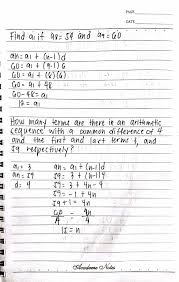 PAGE
DATE
Find a₁ if a₈ = 54 and a₉ = 60
an = a₁ + (n-1)d
60 = a₁ + (9-1)6
60 = a₁ + (8)(6)
60 = a₁ + 48
60-48 = a₁
12 = a₁
How many terms are there in an arithmetic
sequence with a common difference of 4
and the first and last terms 3, and
59 respectively?
a₁ = 3 an = a₁ + (n-1)d
an = 59 59 = 3 + (n-1)4
d: 4 59 = 3 + 4n - 4
59 = -1 + 4n
59 + 1 = 4n
60 4n
4 4
15 = n
Academe Notes